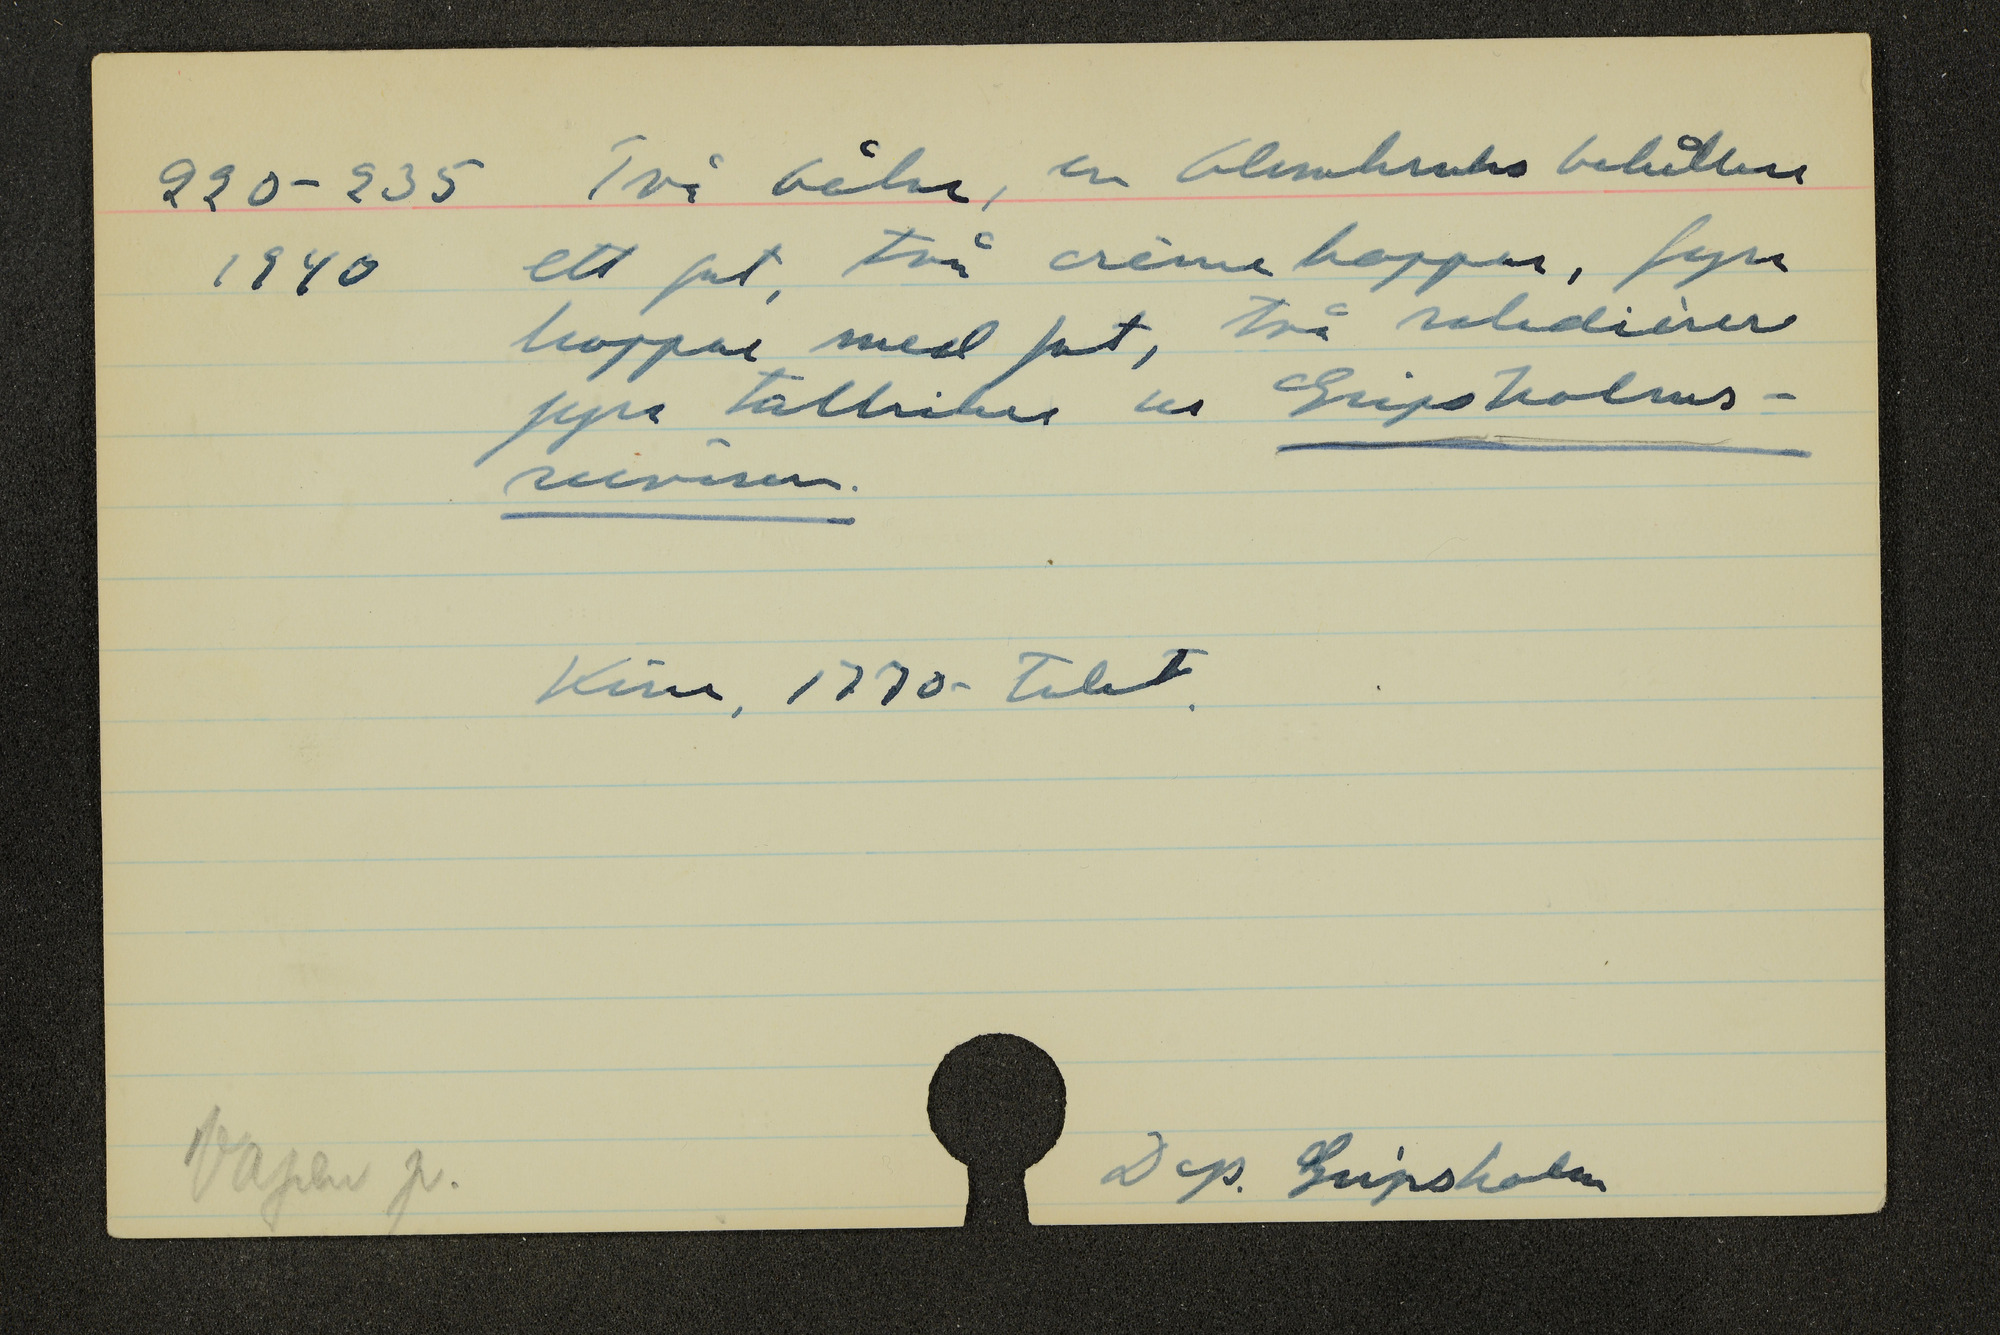 220-235 Två bålar, en blomkruks behållare
1940 ett fat, två crème koppar, fyra
koppar med fat, två saladièrer
fyra tallrikar ur Gripsholms-
servisen.
Kina, 1770-talet.
Vapen p.
Dep. Gripsholm